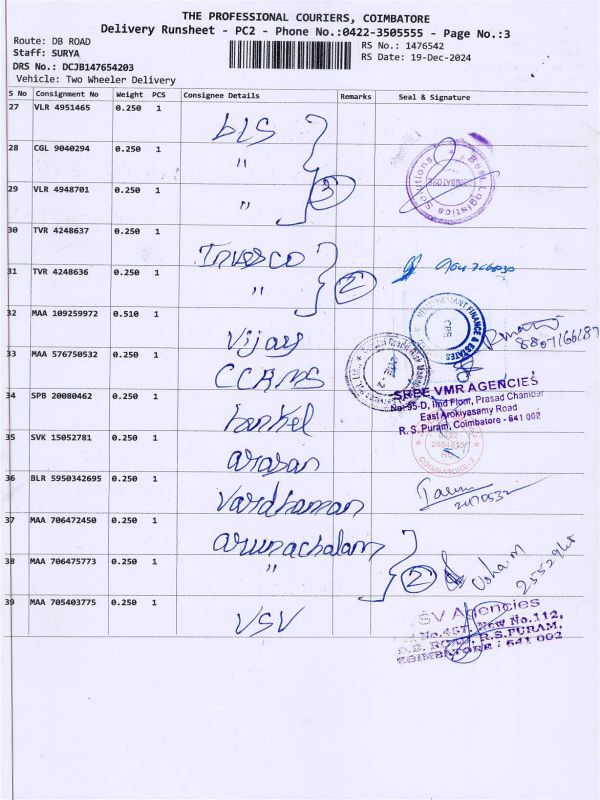 THE PROFESSIONAL COURIERS, COIMBATORE
Delivery Runsheet - PC2 - Phone No.:0422-3505555 - Page No.:3
Route: DB ROAD
RS No.: 1476542
Staff: SURYA
RS Date: 19-Dec-2024
DRS No.: DCJB147654203
Vehicle: Two Wheeler Delivery
S No Consignment No Weight PCS Consignee Details Remarks Seal & Signature
27 VLR 4951465 0.250 1 BLS
28 CGL 9040294 0.250 1 "
29 VLR 4948701 0.250 1 " 3
Best Logistics Solutions COIMBATORE
30 TVR 4248637 0.250 1 Invesco
31 TVR 4248636 0.250 1 " 2
32 MAA 109259972 0.510 1 Vijay
FINANCE & ESTATES
8807166187
33 MAA 576750532 0.250 1 CCAMS
34 SPB 20080462 0.250 1
SREE VMR AGENCIES
No: 95-D, IInd Floor, Prasad Chamber
East Arokiyasamy Road
R. S. Puram, Coimbatore - 641 002
35 SVK 15052781 0.250 1 arasan
0422
COIMBATORE-2
36 BLR 5950342695 0.250 1 Vardhaman
37 MAA 706472450 0.250 1 arunachalam
38 MAA 706475773 0.250 1 " 2
Usha M
39 MAA 705403775 0.250 1 VSV
SV Agencies
No.457, New No.112,
D.B. ROAD, R.S.PURAM,
COIMBATORE : 641 002